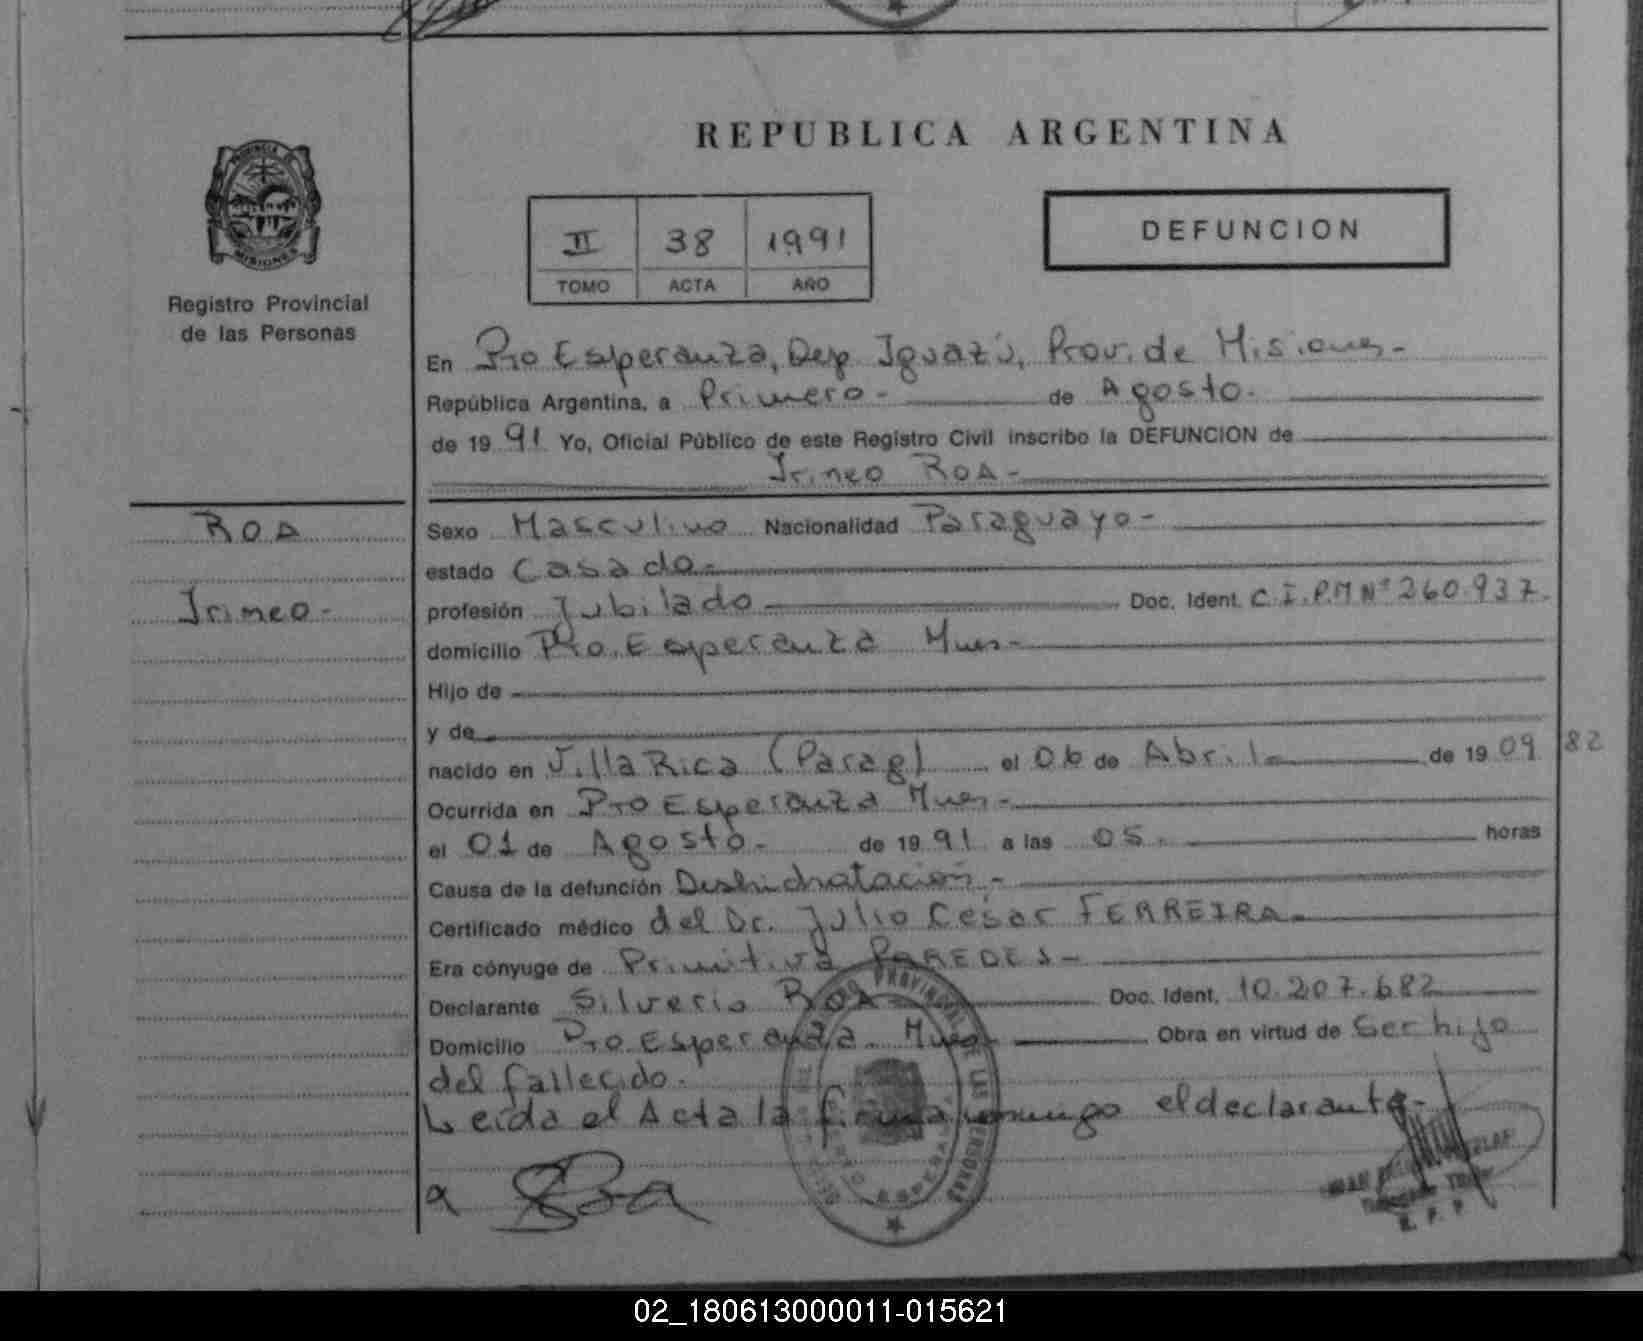 REPUBLICA ARGENTINA
PROVINCIA DE
MISIONES
Registro Provincial
de las Personas
II 38 1991
TOMO ACTA AÑO
DEFUNCION
En Pto Esperanza, Dep. Iguazú, Prov. de Misiones.-
República Argentina, a Primero.- de Agosto.
de 19 91 Yo, Oficial Público de este Registro Civil inscribo la DEFUNCION de
Irineo ROA-
ROA
Irineo-
Sexo Masculino Nacionalidad Paraguayo-
estado Casado-
profesión Jubilado Doc. Ident. C.I.P.M Nº 260.937.
domicilio Pto. Esperanza Mnes-
Hijo de
y de
nacido en Villa Rica (Parag) el 06 de Abril de 19 09 82
Ocurrida en Pto Esperanza Mnes-
el 01 de Agosto- de 19 91 a las 05. horas
Causa de la defunción Deshidratación.-
Certificado médico del Dr. Julio César FERREIRA.
Era cónyuge de Primitiva PAREDES-
Declarante Silverio Roa Doc. Ident. 10.207.682
Domicilio Pto. Esperanza. Mnes Obra en virtud de Ser hijo
del fallecido.
Leida el Acta la firma conmigo el declarante-
a Roa
R. P. P.
02_180613000011-015621